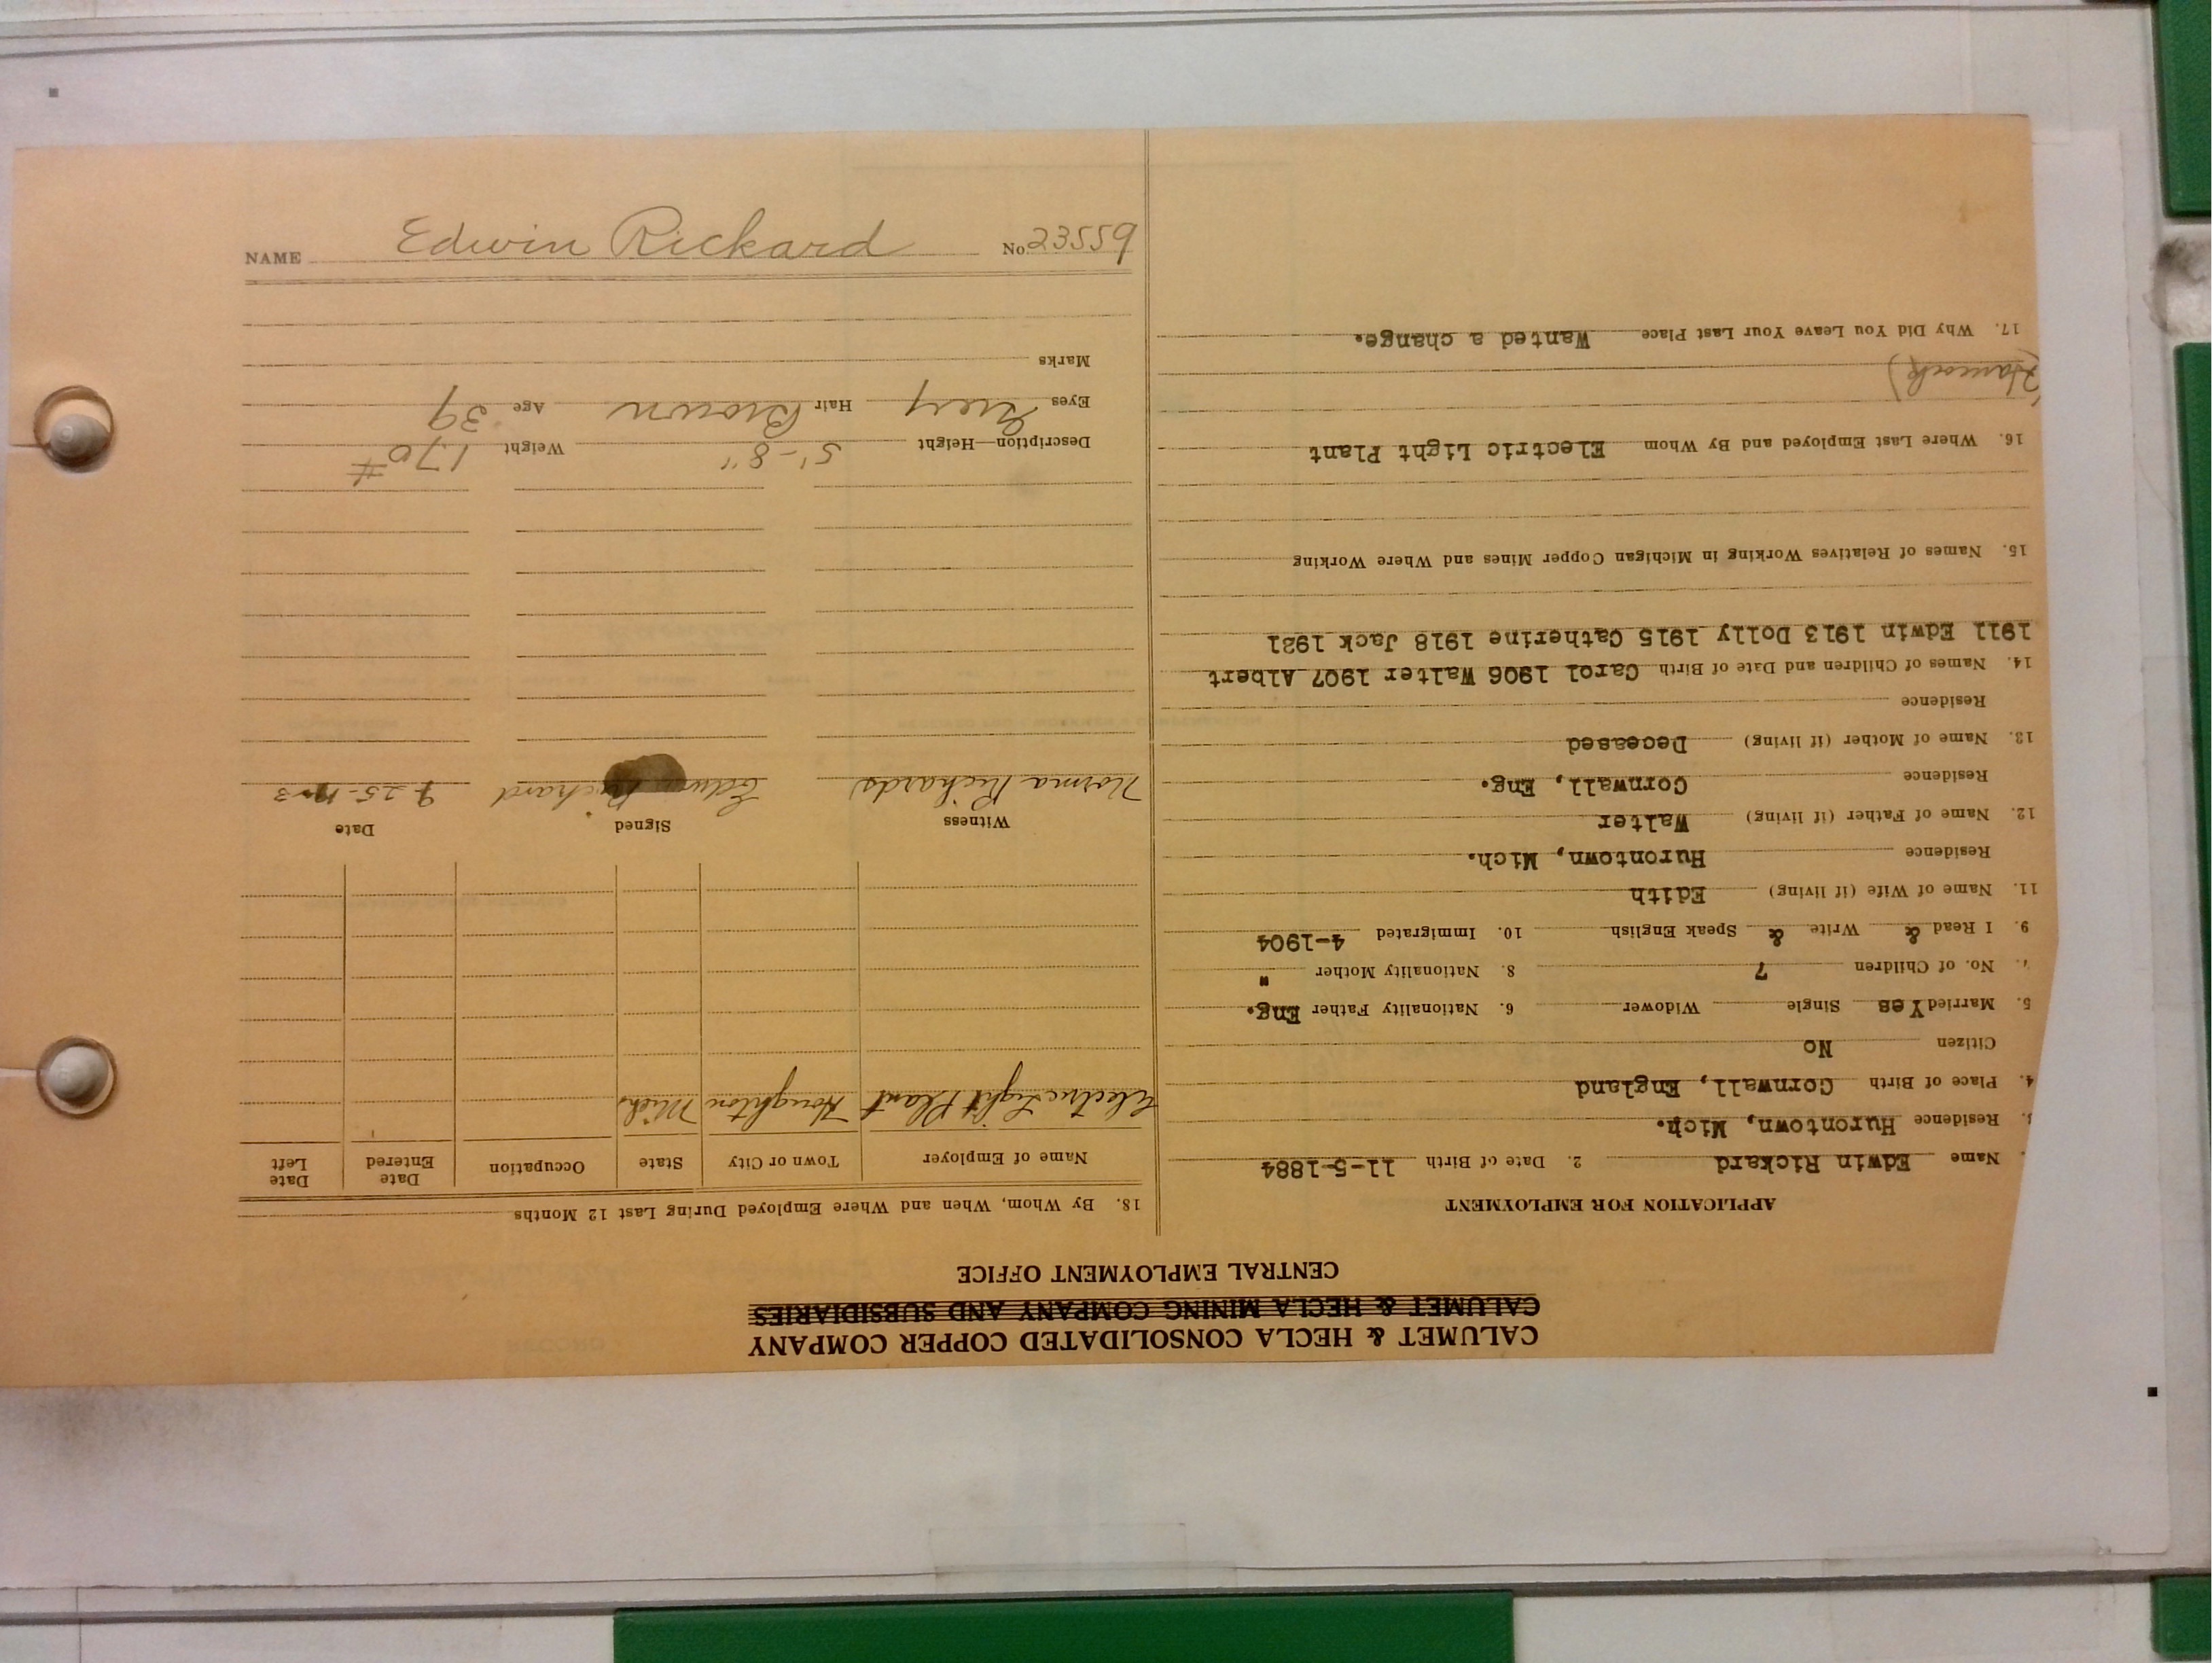 NAME Edwin Rickard No 23559
CALUMET & HECLA CONSOLIDATED COPPER COMPANY
CALUMET & HECLA MINING COMPANY AND SUBSIDIARIES
CENTRAL EMPLOYMENT OFFICE
APPLICATION FOR EMPLOYMENT
Name Edwin Rickard 2. Date of Birth 11-5-1884
3. Residence Hurontown, Mich.
4. Place of Birth Cornwall, England
Citizen No
5. Married Yes Single Widower 6. Nationality Father Eng.
No. of Children 7 8. Nationality Mother "
9. I Read & Write & Speak English 10. Immigrated 4-1904
11. Name of Wife (if living) Edith
Residence Hurontown, Mich.
12. Name of Father (if living) Walter
Residence Cornwall, Eng.
13. Name of Mother (if living) Deceased
Residence
14. Names of Children and Date of Birth Carol 1906 Walter 1907 Albert
1911 Edwin 1913 Dolly 1915 Catherine 1918 Jack 1921
15. Names of Relatives Working in Michigan Copper Mines and Where Working
16. Where Last Employed and By Whom Electric Light Plant
17. Why Did You Leave Your Last Place Wanted a change.
18. By Whom, When and Where Employed During Last 12 Months
Name of Employer Town or City State Occupation Date Entered Date Left
Electric Light Plant Houghton Mich.
Witness Signed Date
Norma Richards Edwin Rickard
Description—Height 5'-8" Weight 170 #
Eyes Grey Hair Brown Age 39
Marks